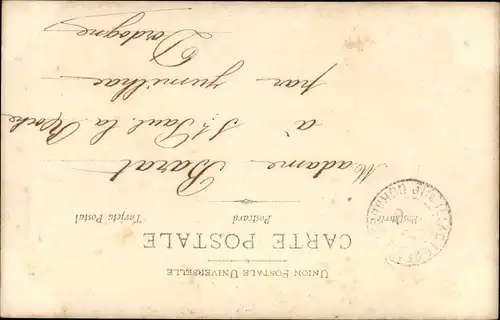 UNION POSTALE UNIVERSELLE
CARTE POSTALE
Postkarte Postcard Tarjeta Postal
Madame Barat
à St Paul la Roche
par Jumilhac
Dordogne